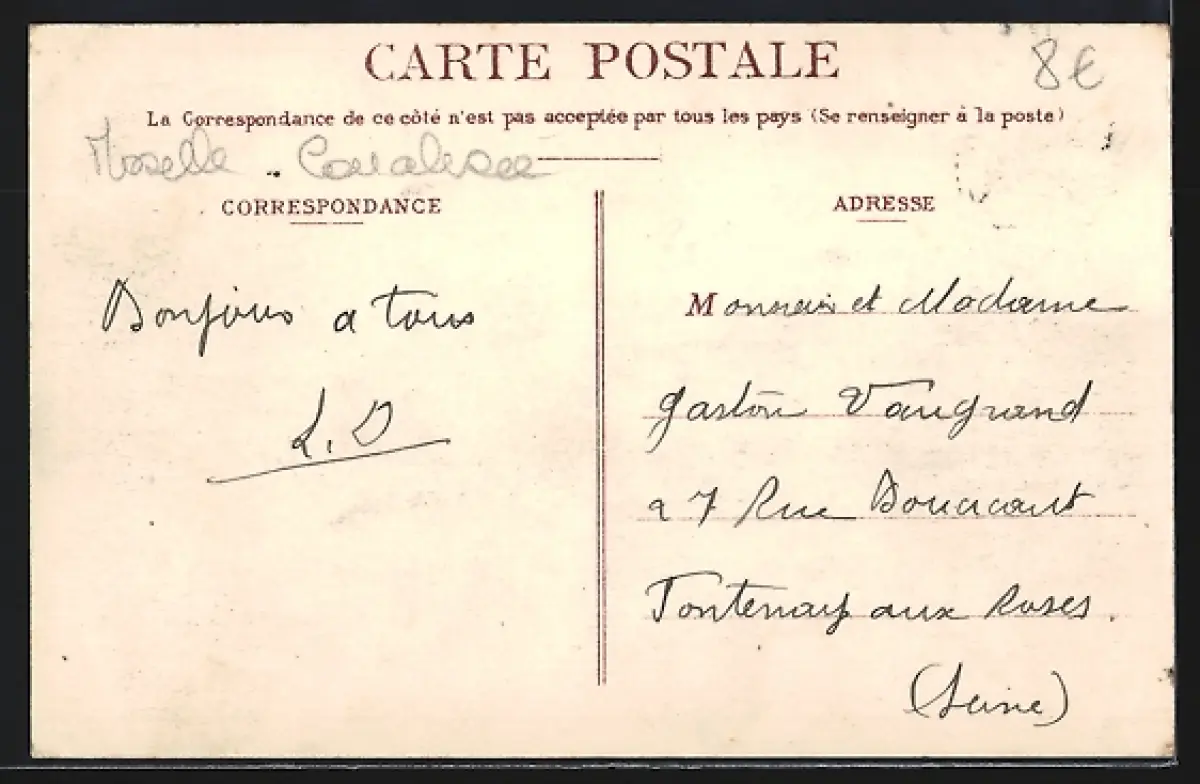 CARTE POSTALE
8€
La Correspondance de ce côté n'est pas acceptée par tous les pays (Se renseigner à la poste)
Moselle -
CORRESPONDANCE
ADRESSE
Bonjour a tous
L. D
Monsieur et Madame
gaston Vaugrand
27 Rue Boucicaut
Fontenay aux Roses.
(Seine)